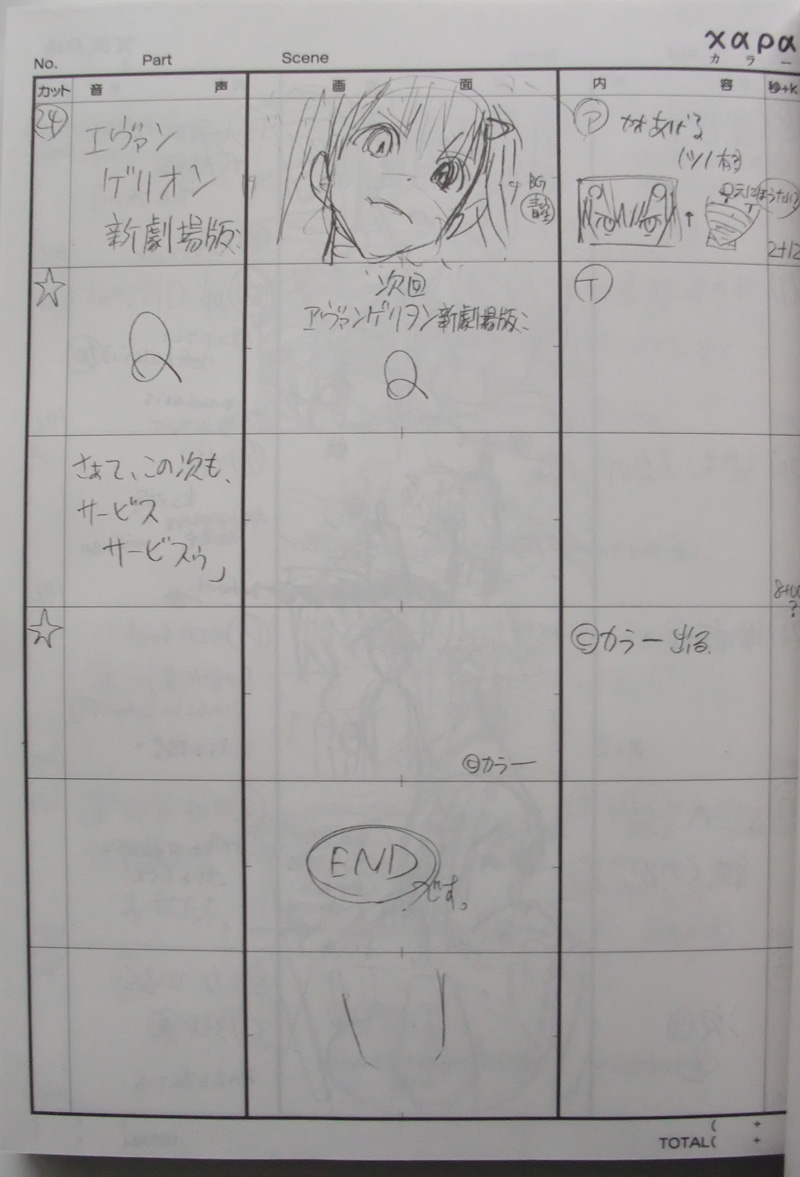 No.
Part
Scene
χαρα
カラー
カット
音 声
画 面
内 容
秒+k
24
エヴァン
ゲリオン
新劇場版:
BG
ア
かおあげる
2+12
☆
Q
次回
ヱヴァンゲリヲン新劇場版:
Q
T
さぁて、この次も、
サービス
サービスゥ」
8+00
?
☆
©カラー出る
©カラー
END
です。
( +
TOTAL( +